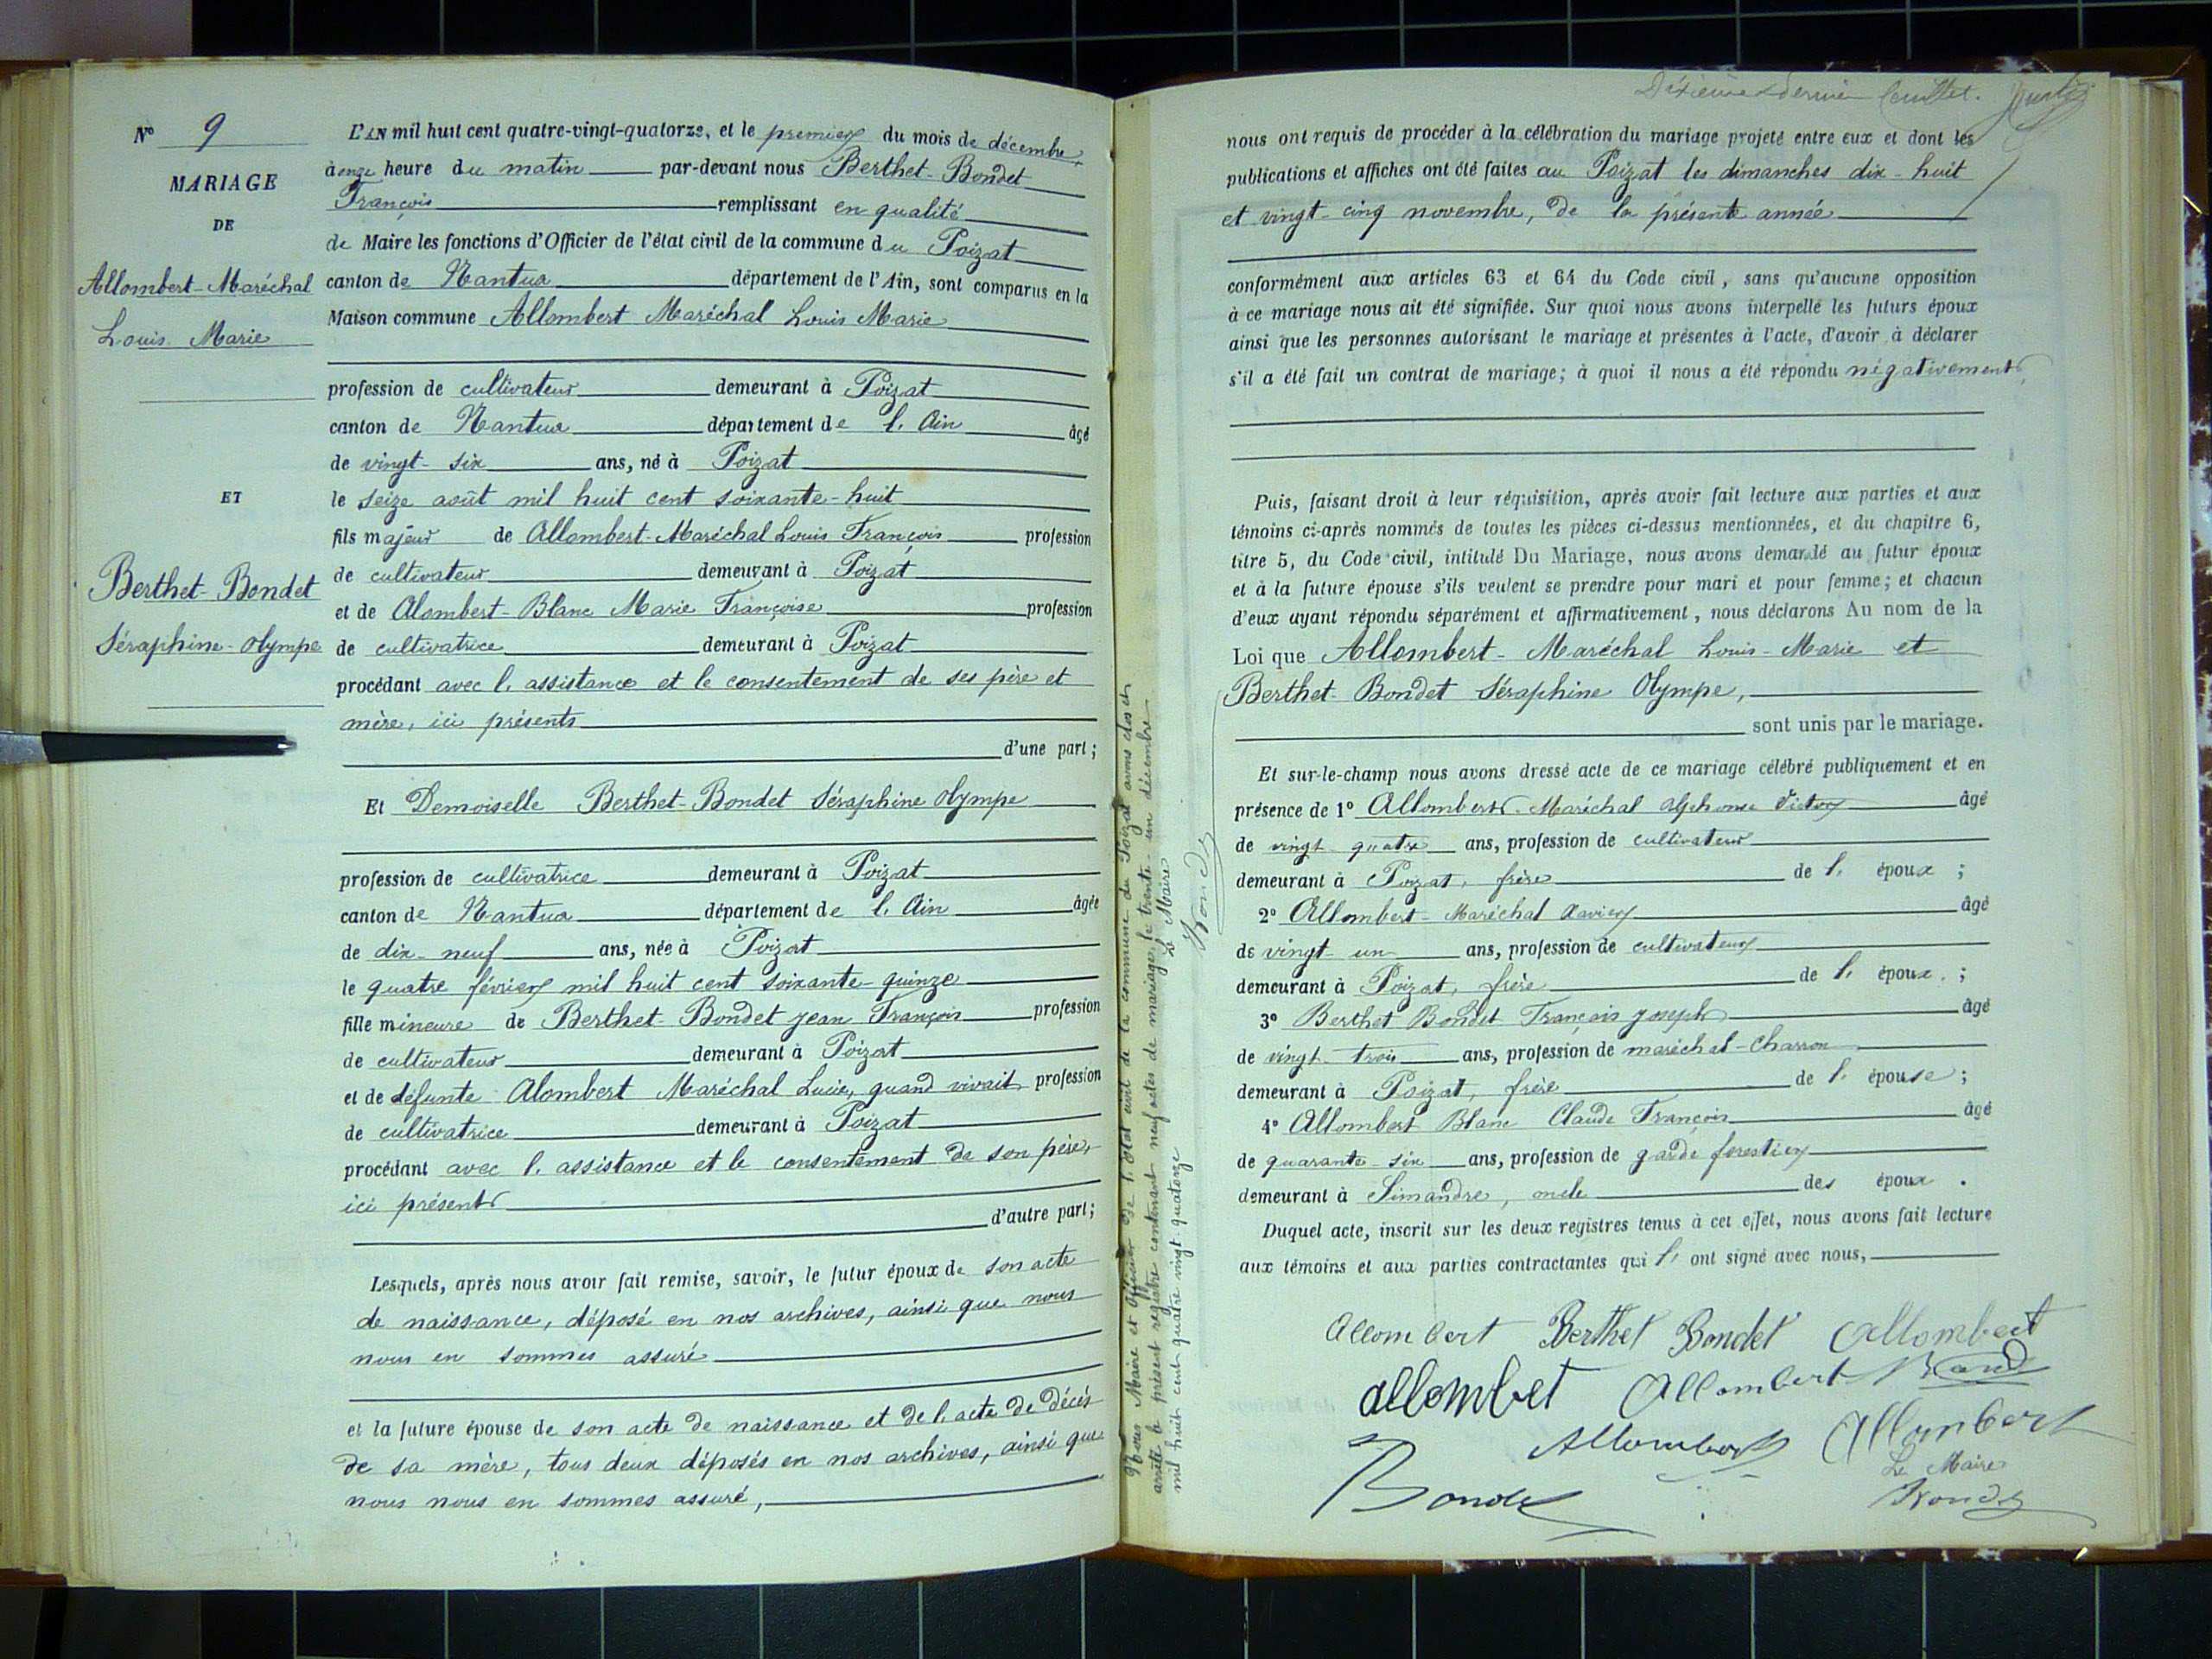 N° 9
MARIAGE
DE
Allombert-Maréchal
Louis Marie
ET
Berthet-Bondet
Séraphine-Olympe
L'AN mil huit cent quatre-vingt-quatorze, et le premier du mois de décembre
à onze heure du matin par-devant nous Berthet-Bondet
François remplissant en qualité
de Maire les fonctions d'Officier de l'état civil de la commune du Poizat
canton de Nantua département de l'Ain, sont comparus en la
Maison commune Allombert Maréchal Louis Marie
profession de cultivateur demeurant à Poizat
canton de Nantua département de l'Ain âgé
de vingt-six ans, né à Poizat
le seize août mil huit cent soixante-huit
fils majeur de Allombert-Maréchal Louis François profession
de cultivateur demeurant à Poizat
et de Alombert-Blanc Marie Françoise profession
de cultivatrice demeurant à Poizat
procédant avec l'assistance et le consentement de ses père et
mère, ici présents
d'une part;
Et Demoiselle Berthet-Bondet Séraphine Olympe
profession de cultivatrice demeurant à Poizat
canton de Nantua département de l'Ain âgée
de dix-neuf ans, née à Poizat
le quatre février mil huit cent soixante-quinze
fille mineure de Berthet-Bondet Jean François profession
de cultivateur demeurant à Poizat
et de défunte Alombert Maréchal Lucie, quand vivait profession
de cultivatrice demeurant à Poizat
procédant avec l'assistance et le consentement de son père,
ici présent
d'autre part;
Lesquels, après nous avoir fait remise, savoir, le futur époux de son acte
de naissance, déposé en nos archives, ainsi que nous
nous en sommes assuré
et la future épouse de son acte de naissance et de l'acte de décès
de sa mère, tous deux déposés en nos archives, ainsi que
nous nous en sommes assuré,
Nous Maire et Officier de l'état civil de la commune du Poizat avons clos et
arrêté le présent registre contenant neuf actes de mariage, le trente-un décembre
mil huit cent quatre vingt-quatorze
Le Maire
Dixième & dernier feuillet.
nous ont requis de procéder à la célébration du mariage projeté entre eux et dont les
publications et affiches ont été faites au Poizat les dimanches dix-huit
et vingt-cinq novembre, de la présente année
conformément aux articles 63 et 64 du Code civil, sans qu'aucune opposition
à ce mariage nous ait été signifiée. Sur quoi nous avons interpellé les futurs époux
ainsi que les personnes autorisant le mariage et présentes à l'acte, d'avoir à déclarer
s'il a été fait un contrat de mariage; à quoi il nous a été répondu négativement
Puis, faisant droit à leur réquisition, après avoir fait lecture aux parties et aux
témoins ci-après nommés de toutes les pièces ci-dessus mentionnées, et du chapitre 6,
titre 5, du Code civil, intitulé Du Mariage, nous avons demandé au futur époux
et à la future épouse s'ils veulent se prendre pour mari et pour femme; et chacun
d'eux ayant répondu séparément et affirmativement, nous déclarons Au nom de la
Loi que Allombert-Maréchal Louis-Marie et
Berthet-Bondet Séraphine Olympe,
sont unis par le mariage.
Et sur-le-champ nous avons dressé acte de ce mariage célébré publiquement et en
présence de 1° Allombert-Maréchal Alphonse Victor âgé
de vingt-quatre ans, profession de cultivateur
demeurant à Poizat, frère de l'époux;
2° Allombert-Maréchal Xavier âgé
de vingt-un ans, profession de cultivateur
demeurant à Poizat, frère de l'époux;
3° Berthet Bondet François Joseph âgé
de vingt-trois ans, profession de maréchal-Charron
demeurant à Poizat, frère de l'épouse;
4° Allombert Blanc Claude François âgé
de quarante-six ans, profession de garde forestier
demeurant à Simandre, oncle des époux.
Duquel acte, inscrit sur les deux registres tenus à cet effet, nous avons fait lecture
aux témoins et aux parties contractantes qui l'ont signé avec nous,
Allombert Berthet Bondet Allombert
allombet Allombert
Allombert Allombert
Le Maire